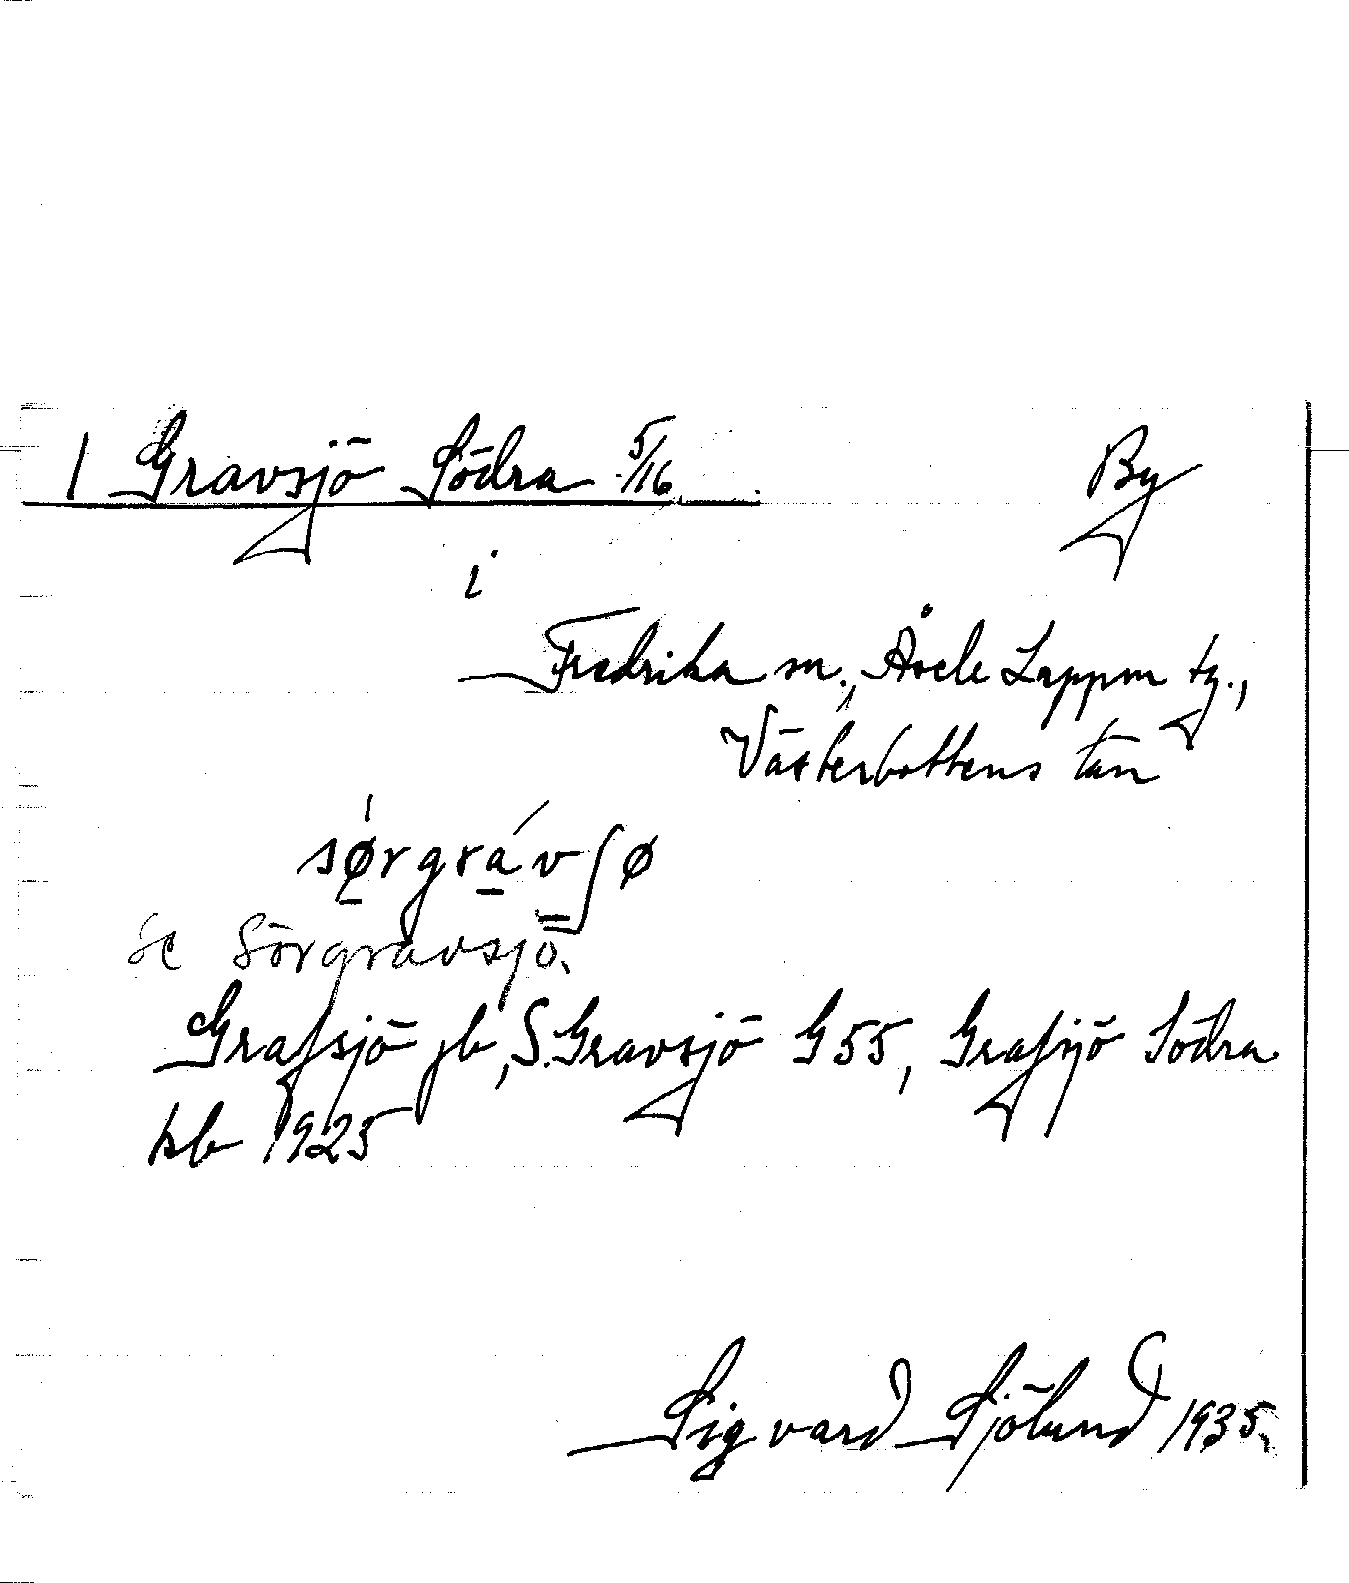 1 Gravsjö Södra 5/16 By
i
Fredrika sn., Åsele Lappm tg.,
Västerbottens län
sørgrávʃø
se Sörgravsjö.
Grafsjö jb, S. Gravsjö G55, Grafsjö Södra
kb 1925
Sigvard Sjölund 1935.